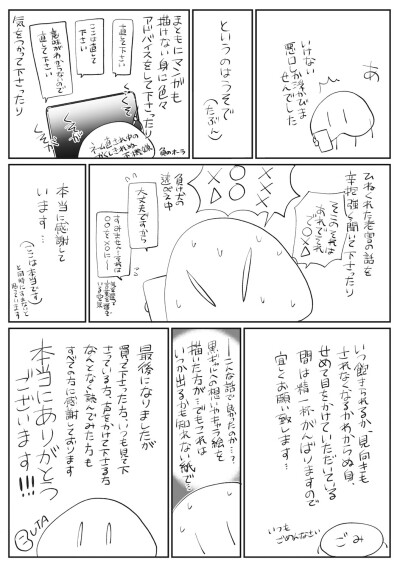 あ
いけない
悪口しか浮かびま
せんでした
というのはうそで
(たぶん)
まともにマンガも
描けない身に色々
アドバイスをして下さったり
直して下さい
ここは直して
下さい
意味がわからないので
直して下さい
ネーム直され中の
かくしきれぬ
不機嫌
負のオーラ
気をつかって下さったり
ひねくれた老害の話を
辛抱強く聞いて下さったり
そこのそれは
あれでそれ
で〇×△
〇×△
負け犬の
遠吠え中
大丈夫ですから
すみません…今度は
〇〇を××に…
本当に感謝して
います…
(ここは本当です
と同時にすまないと
思っています)
いつ飽きられるか、見向きも
されなくなるかわからぬ身、
せめて目をかけていただいている
間は精一杯がんばりますので
宜しくお願い致します…
いつも
ごめんなさい
ごみ
―こんな話で良かったのか…?
黒ギャルへの想いやキャラ絵を
描いた方が…でもこれは
いつか出るかも知れない紙で…
最後になりましたが
買って下さった方、いつも見て下
さっている方、声をかけて下さる方
なんとなく読んでみた方も
すべての方に感謝しております
本当にありがとう
ございます!!!
UTA